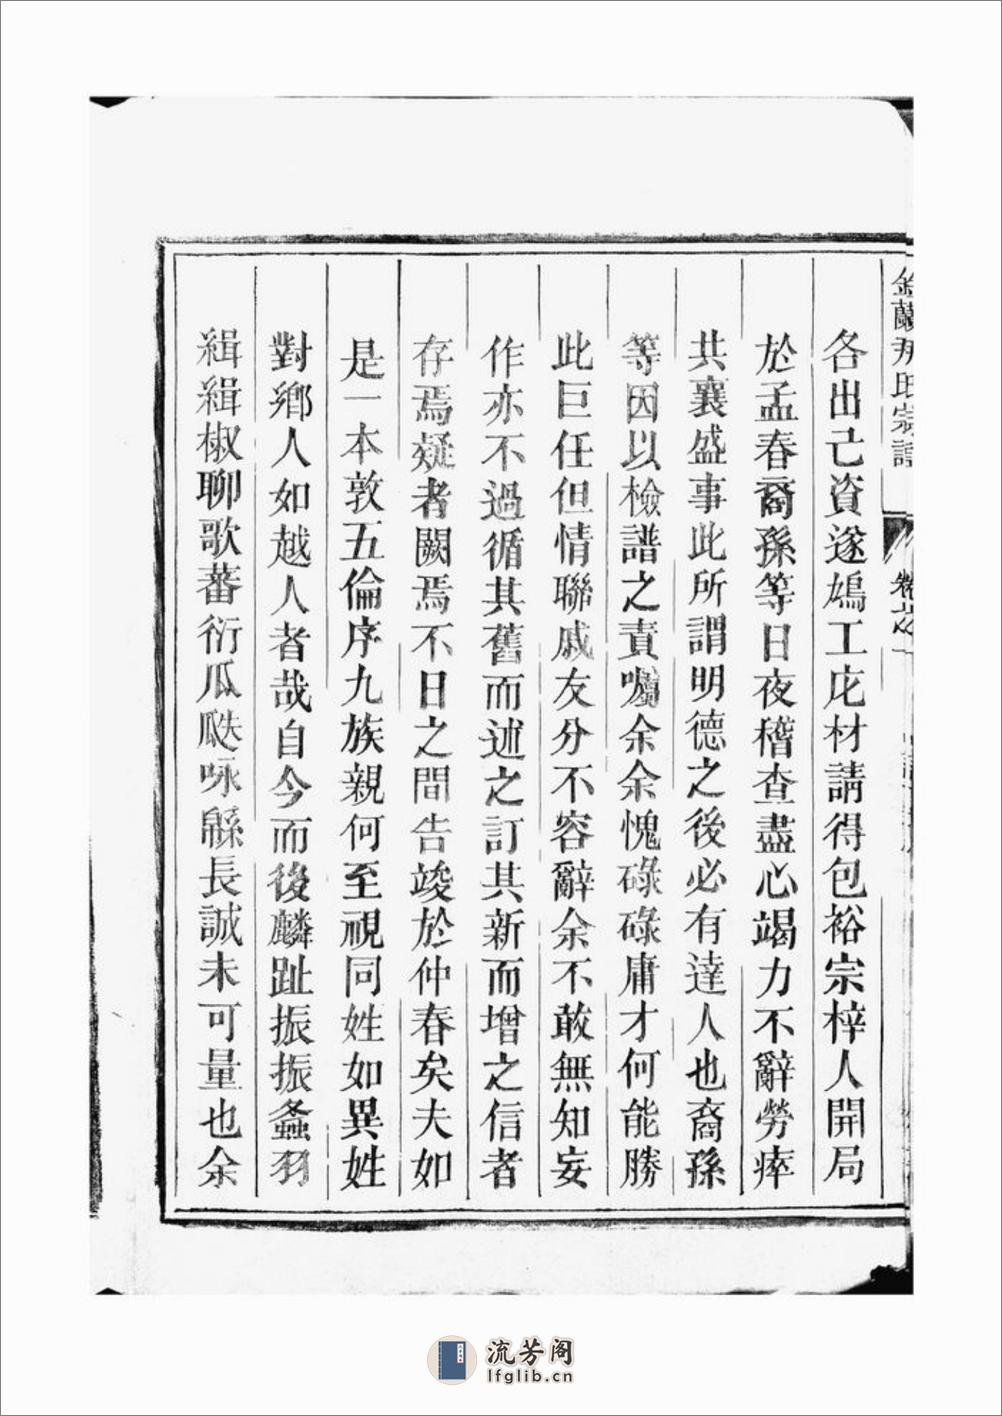 氏宗譜
卷之
各出己資遂鳩工庀材請得包裕宗梓人開局
於孟春裔孫等日夜稽查盡心竭力不辭勞瘁
共襄盛事此所謂明德之後必有達人也裔孫
等因以檢譜之責囑余余愧碌碌庸才何能勝
此巨任但情聯戚友分不容辭余不敢無知妄
作亦不過循其舊而述之訂其新而增之信者
存焉疑者闕焉不日之間告竣於仲春矣夫如
是一本敦五倫序九族親何至視同姓如異姓
對鄉人如越人者哉自今而後麟趾振振螽羽
緝緝椒聊歌蕃衍瓜瓞咏緜長誠未可量也余
流芳阁
lfglib.cn